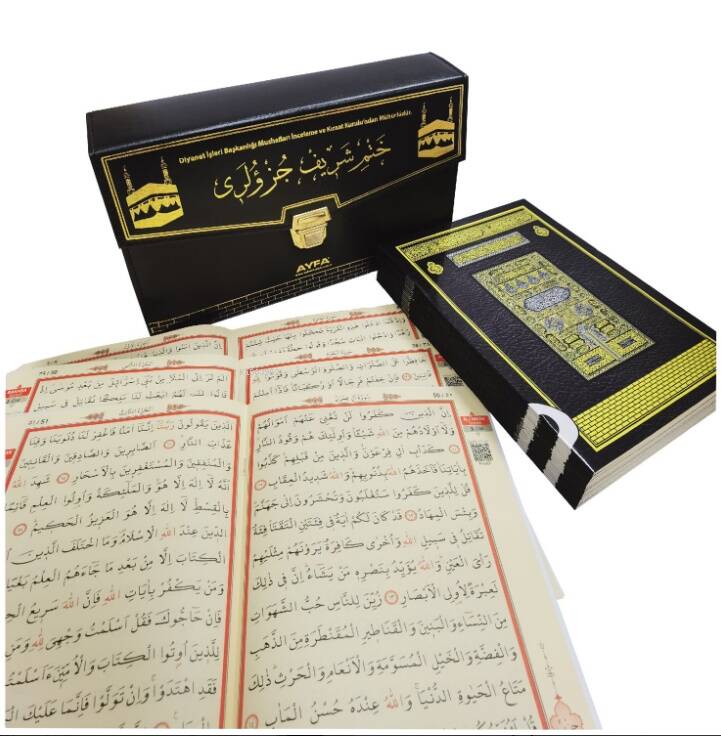 Diyanet İşleri Başkanlığı Mushafları İnceleme ve Kıraat Kurulu'ndan Mühürlüdür.
ختم شريف جزؤلرى
AYFA
وَاِذْ قُلْنَا ادْخُلُوا هٰذِهِ الْقَرْيَةَ فَكُلُوا مِنْهَا حَيْثُ شِئْتُمْ
اِنَّ الَّذِينَ اٰمَنُوا وَالَّذِينَ
حَافِظُوا عَلَى الصَّلَوَاتِ وَالصَّلٰوةِ الْوُسْطٰى وَقُومُوا لِلّٰهِ
فَاِنْ خِفْتُمْ فَرِجَالًا اَوْ رُكْبَانًا فَاِذَا اَمِنْتُمْ
اَلَمْ تَرَ اِلَى الْمَلَاِ مِنْ بَنِى اِسْرَٓائِلَ مِنْ بَعْدِ مُوسٰى اِذْ
قَالُوا لِنَبِىٍّ لَهُمُ ابْعَثْ لَنَا مَلِكًا نُقَاتِلْ فِى سَبِيلِ
اِنَّ الَّذِينَ كَفَرُوا لَنْ تُغْنِىَ عَنْهُمْ اَمْوَالُهُمْ
وَلَٓا اَوْلَادُهُمْ مِنَ اللّٰهِ شَيْئًا وَاُولٰٓئِكَ هُمْ وَقُودُ النَّارِ
كَدَاْبِ اٰلِ فِرْعَوْنَ وَالَّذِينَ مِنْ قَبْلِهِمْ كَذَّبُوا
بِاٰيَاتِنَا فَاَخَذَهُمُ اللّٰهُ بِذُنُوبِهِمْ وَاللّٰهُ شَدِيدُ الْعِقَابِ
قُلْ لِلَّذِينَ كَفَرُوا سَتُغْلَبُونَ وَتُحْشَرُونَ اِلٰى جَهَنَّمَ
وَبِئْسَ الْمِهَادُ قَدْ كَانَ لَكُمْ اٰيَةٌ فِى فِئَتَيْنِ الْتَقَتَا فِئَةٌ
تُقَاتِلُ فِى سَبِيلِ اللّٰهِ وَاُخْرٰى كَافِرَةٌ يَرَوْنَهُمْ مِثْلَيْهِمْ
رَاْىَ الْعَيْنِ وَاللّٰهُ يُؤَيِّدُ بِنَصْرِهِ مَنْ يَشَٓاءُ اِنَّ فِى ذٰلِكَ
لَعِبْرَةً لِاُولِى الْاَبْصَارِ زُيِّنَ لِلنَّاسِ حُبُّ الشَّهَوَاتِ
مِنَ النِّسَٓاءِ وَالْبَنِينَ وَالْقَنَاطِيرِ الْمُقَنْطَرَةِ مِنَ الذَّهَبِ
وَالْفِضَّةِ وَالْخَيْلِ الْمُسَوَّمَةِ وَالْاَنْعَامِ وَالْحَرْثِ ذٰلِكَ
مَتَاعُ الْحَيٰوةِ الدُّنْيَا وَاللّٰهُ عِنْدَهُ حُسْنُ الْمَاٰبِ
51
اَلَّذِينَ يَقُولُونَ رَبَّنَٓا اِنَّنَٓا اٰمَنَّا فَاغْفِرْ لَنَا ذُنُوبَنَا وَقِنَا
عَذَابَ النَّارِ اَلصَّابِرِينَ وَالصَّادِقِينَ وَالْقَانِتِينَ
وَالْمُنْفِقِينَ وَالْمُسْتَغْفِرِينَ بِالْاَسْحَارِ شَهِدَ اللّٰهُ
اَنَّهُ لَٓا اِلٰهَ اِلَّا هُوَ وَالْمَلٰٓئِكَةُ وَاُولُوا الْعِلْمِ قَٓائِمًا
بِالْقِسْطِ لَٓا اِلٰهَ اِلَّا هُوَ الْعَزِيزُ الْحَكِيمُ
الدِّينَ عِنْدَ اللّٰهِ الْاِسْلَامُ وَمَا اخْتَلَفَ الَّذِينَ
الْكِتَابَ اِلَّا مِنْ بَعْدِ مَا جَٓاءَهُمُ الْعِلْمُ بَغْيًا
وَمَنْ يَكْفُرْ بِاٰيَاتِ اللّٰهِ فَاِنَّ اللّٰهَ سَرِيعُ
فَاِنْ حَٓاجُّوكَ فَقُلْ اَسْلَمْتُ وَجْهِىَ لِلّٰهِ وَمَنِ
لِلَّذِينَ اُوتُوا الْكِتَابَ وَالْاُمِّيِّنَ ءَاَسْلَمْتُمْ
فَقَدِ اهْتَدَوْا وَاِنْ تَوَلَّوْا فَاِنَّمَا عَلَيْكَ